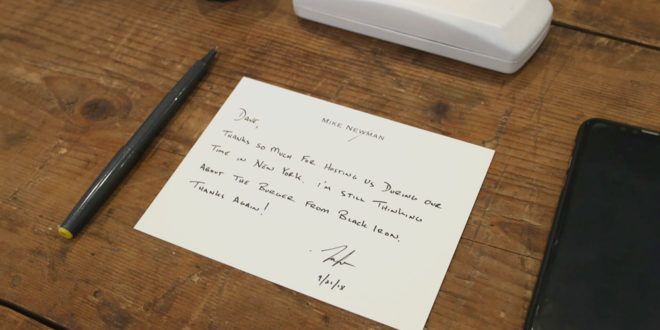 MIKE NEWMAN
DAVE,
THANKS SO MUCH FOR HOSTING US DURING OUR
TIME IN NEW YORK. I'M STILL THINKING
ABOUT THE BURGER FROM BLACK IRON.
THANKS AGAIN!
9/21/18